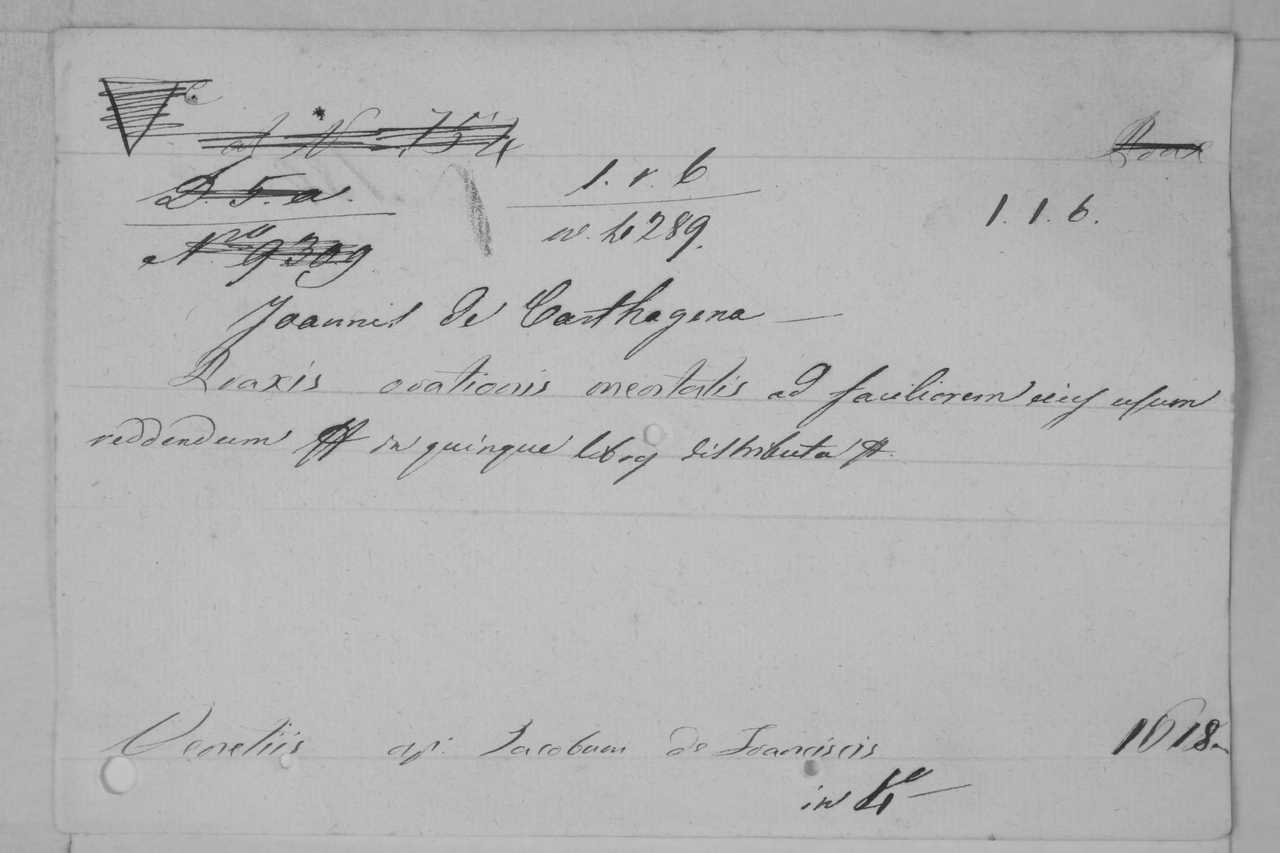 ad N 754
D. 5. a.
Nro 9309
1. r. b
1. 1. b.
289.
Joannis de Carthagena —
Praxis orationis mentalis ad faciliorem eius usum
reddendum # in quinque libros distributa #.
Venetiis ap: Jacobum de Franciscis 1618
in 4to —